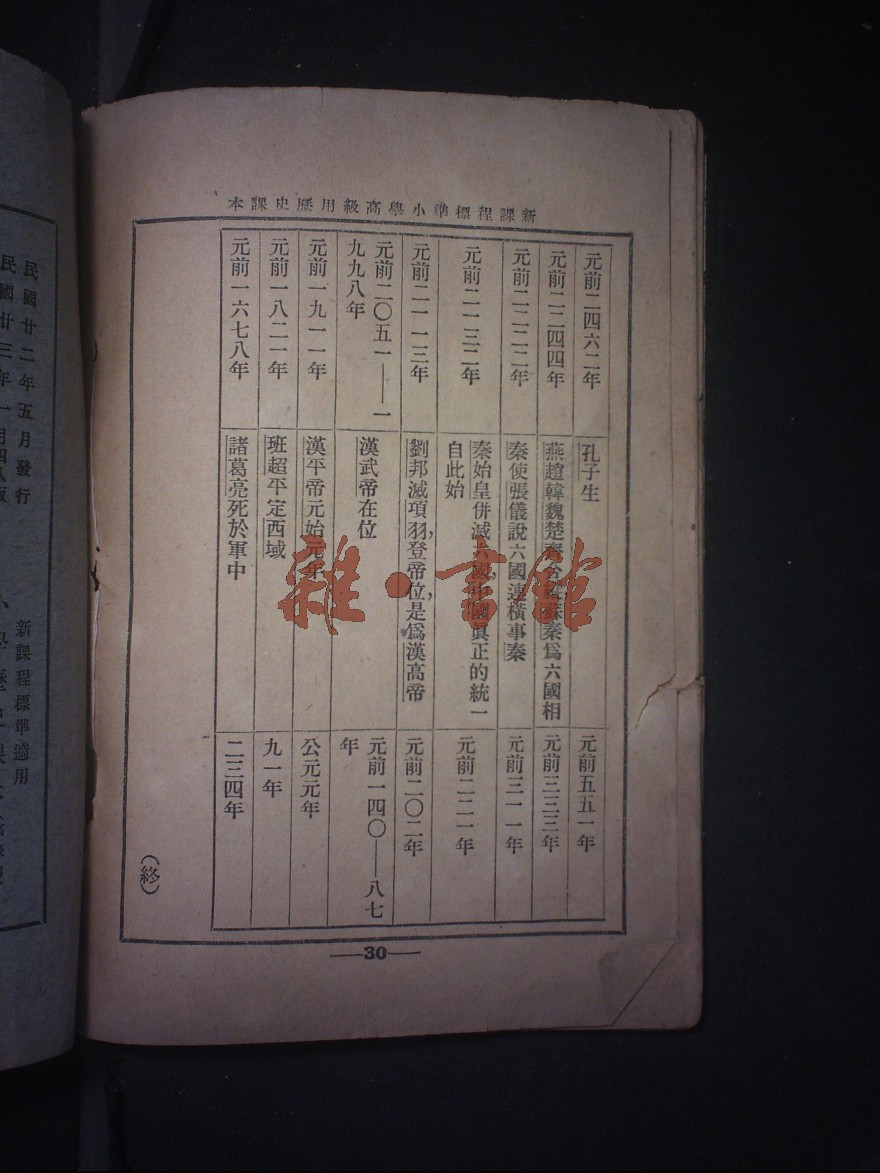 新課程標準小學高級用歷史課本
元前二四六二年
孔子生
元前五五一年
元前二二四四年
燕趙韓魏楚齊合從蘇秦爲六國相
元前三三三年
元前二二二二年
秦使張儀說六國連橫事秦
元前三一一年
元前二一三二年
秦始皇併滅六國,中國眞正的統一
自此始
元前二二一年
元前二一一三年
劉邦滅項羽,登帝位,是爲漢高帝
元前二〇二年
元前二〇五一——一
九九八年
漢武帝在位
元前一四〇——八七
年
元前一九一一年
漢平帝元始元年
公元元年
元前一八二一年
班超平定西域
九一年
元前一六七八年
諸葛亮死於軍中
二三四年
(終)
—30—
雜·書館
民國廿二年五月發行
民國廿三年一月四八版
新課程標準適用